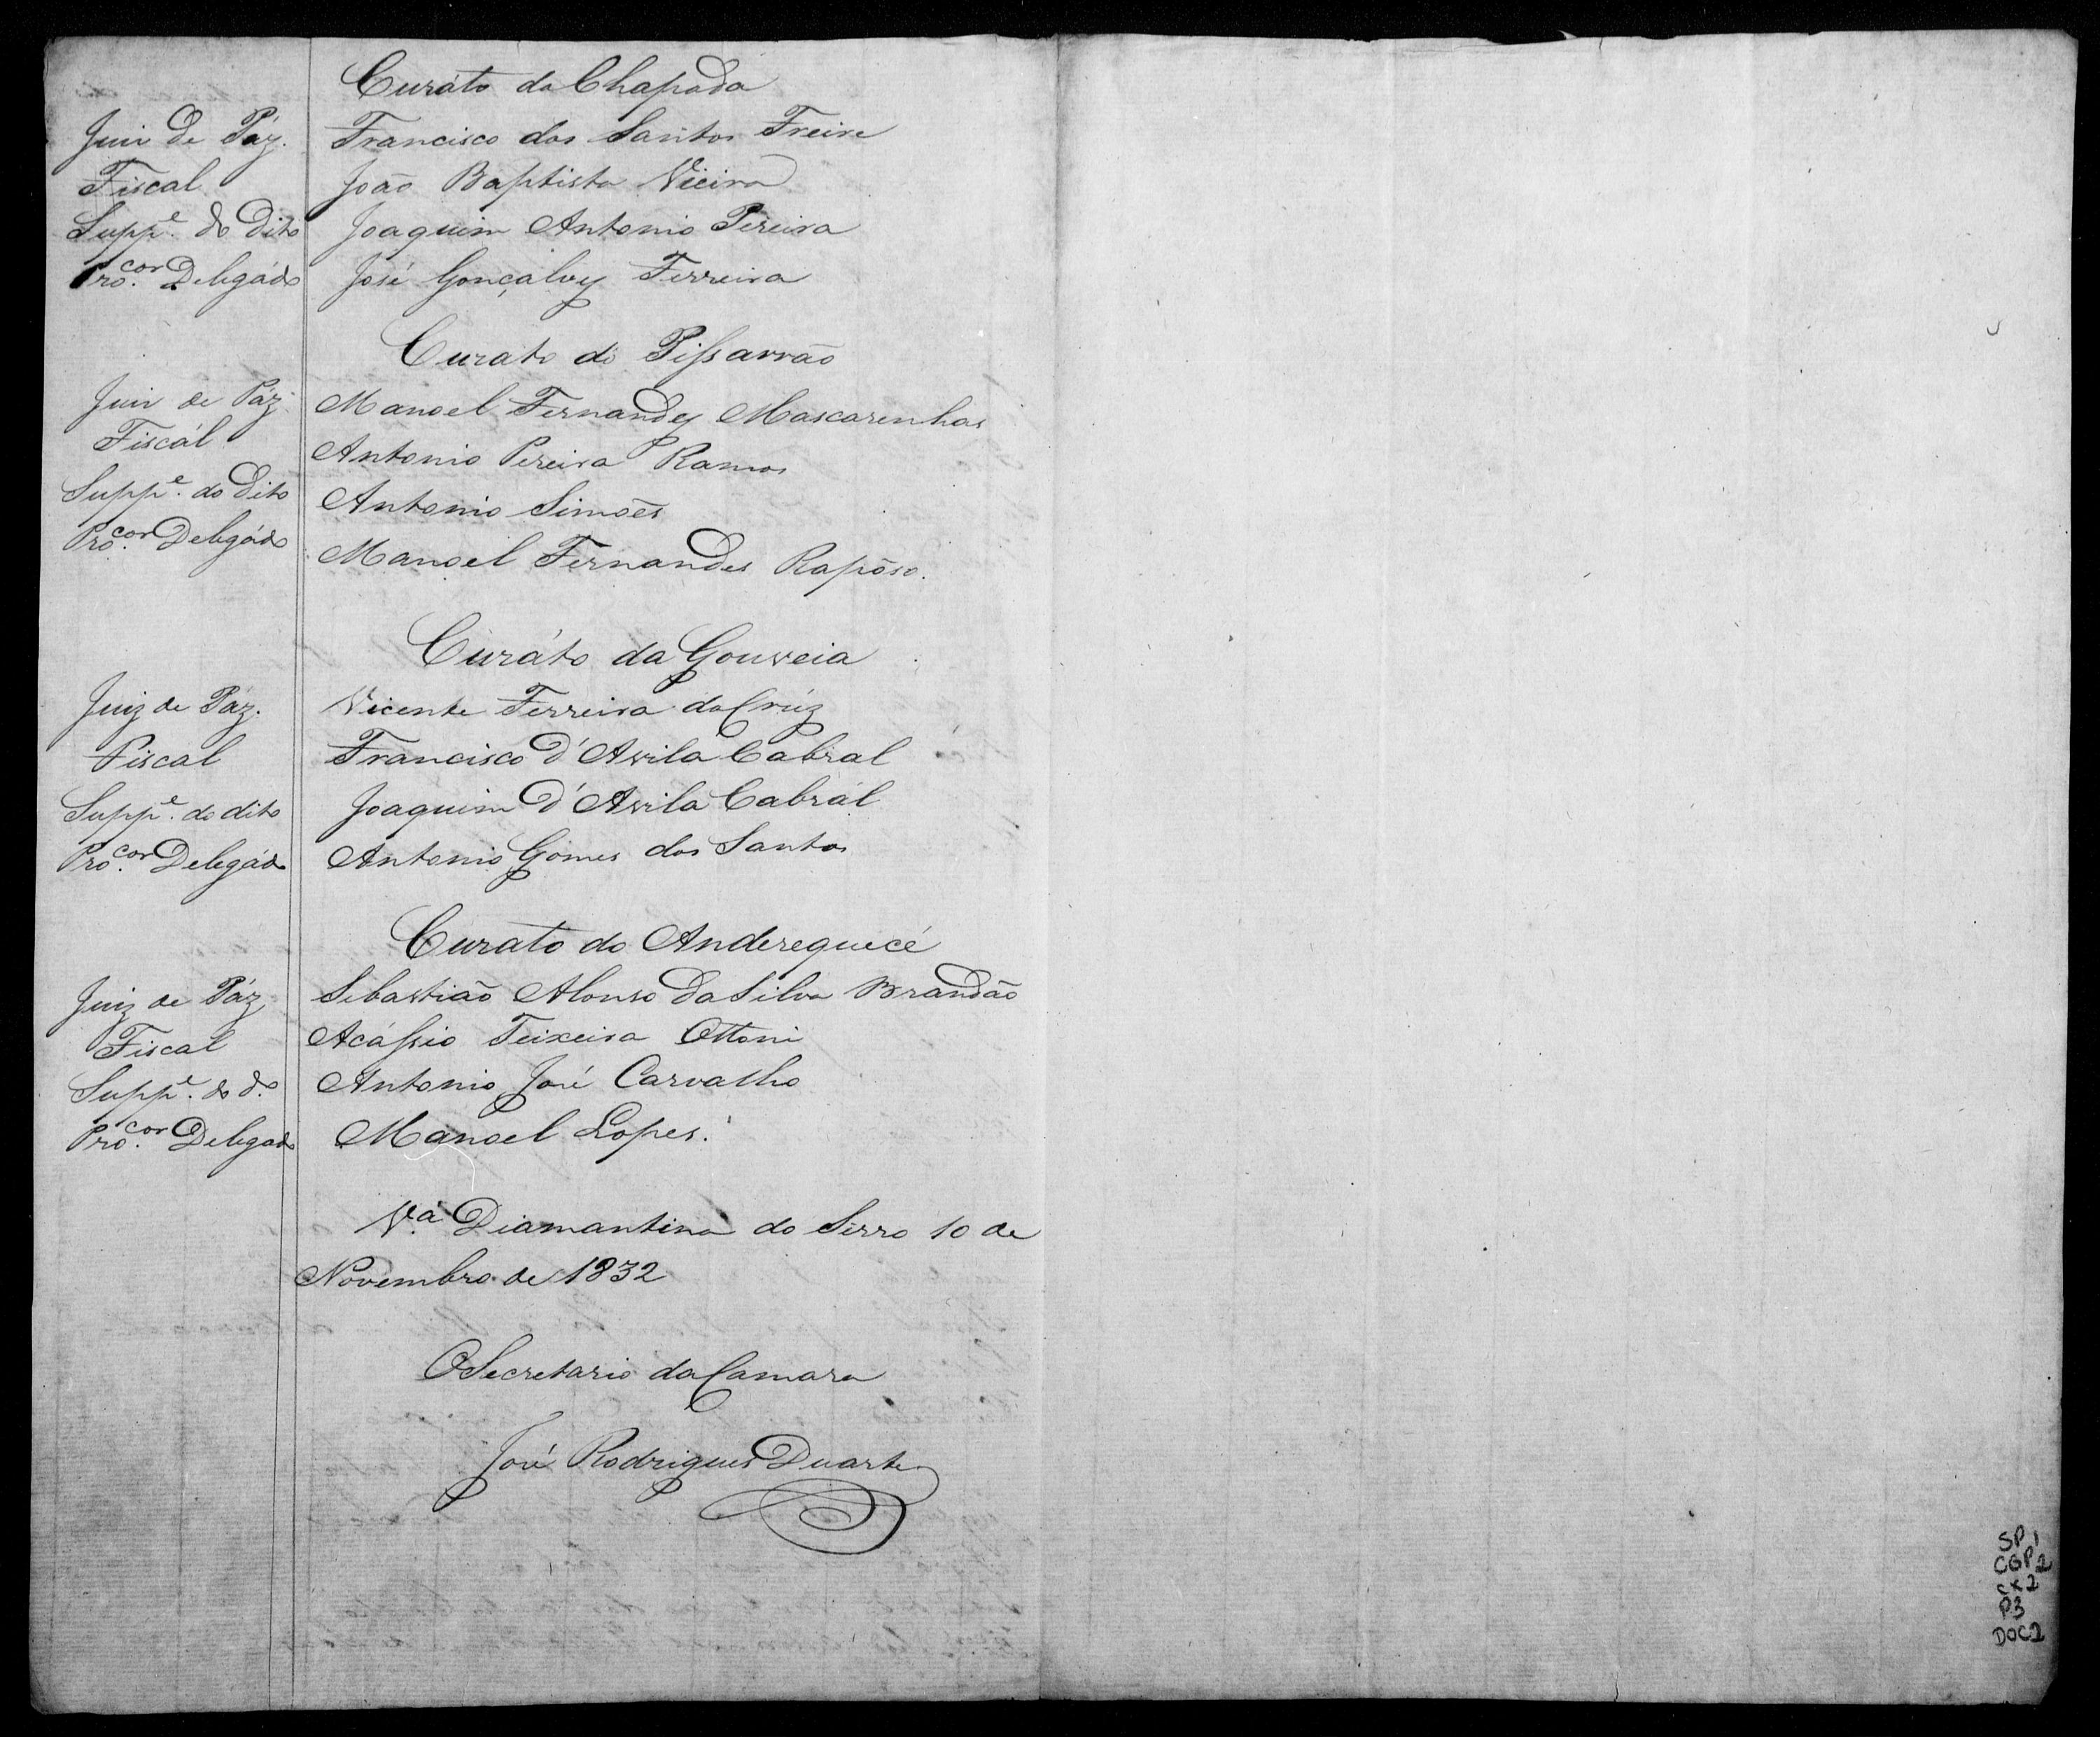 Curáto da Chapada
Juiz de Páz. Francisco dos Santos Freire
Fiscal João Baptista Vieira
Supp.e do Dito Joaquim Antonio Pereira
Pro.cor Delegádo José Gonçalvez Ferreira
Curato do Pissarrão
Juiz de Páz. Manoel Fernandez Mascarenhas
Fiscál Antonio Pereira Ramos
Supp.e do Dito Antonio Simoẽs
Pro.cor Delegádo Manoel Fernandes Rapôso.
Curáto da Gouveia
Juiz de Páz. Vicente Ferreira da Crúz
Fiscal Francisco d'Avila Cabral
Supp.e do dito Joaquim d'Avila Cabrál
Pro.cor Delegádo Antonio Gomes dos Santos
Curato do Anderequecé
Juiz de Páz Sebastião Alonso da Silva Brandão
Fiscal Acássio Teixeira Ottoni
Supp.e do d.o Antonio José Carvalho
Pro.cor Delegado Manoel Lopes.
V.a Diamantina do Serro 10 de
Novembro de 1832
O Secretario da Camara
José Rodrigues Duarte
SP1
CGP2
cx2
P3
DOC2